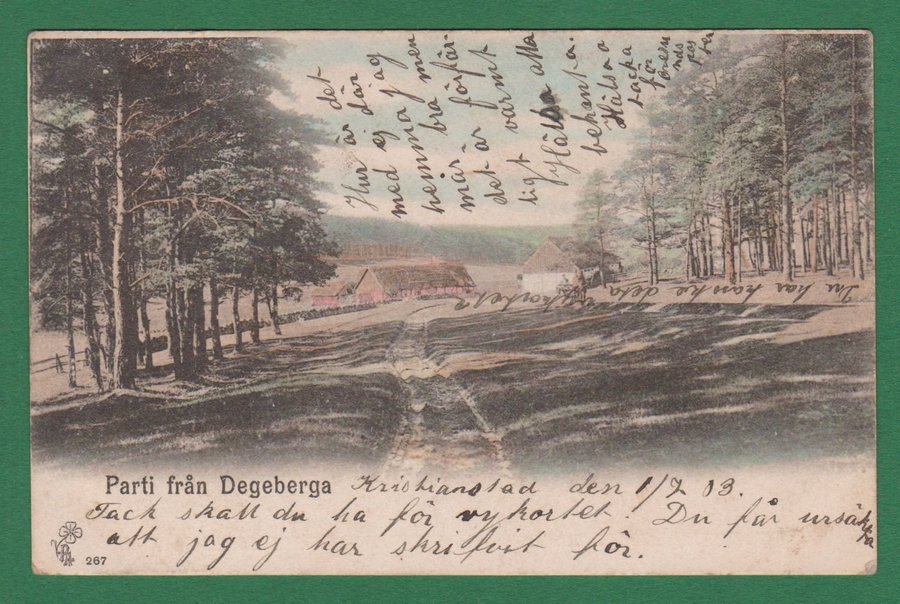 Hur är det
med eg där
hemma jag
mår bra men
det är förfär
lig varmt
Hälsa alla
bekanta.
Hälsa
tacka
för
Du har kanske detta vykortet
Parti från Degeberga Kristianstad den 1/7 03.
Tack skall du ha för vykortet. Du får ursäkta
att jag ej har skrifvit för.
267